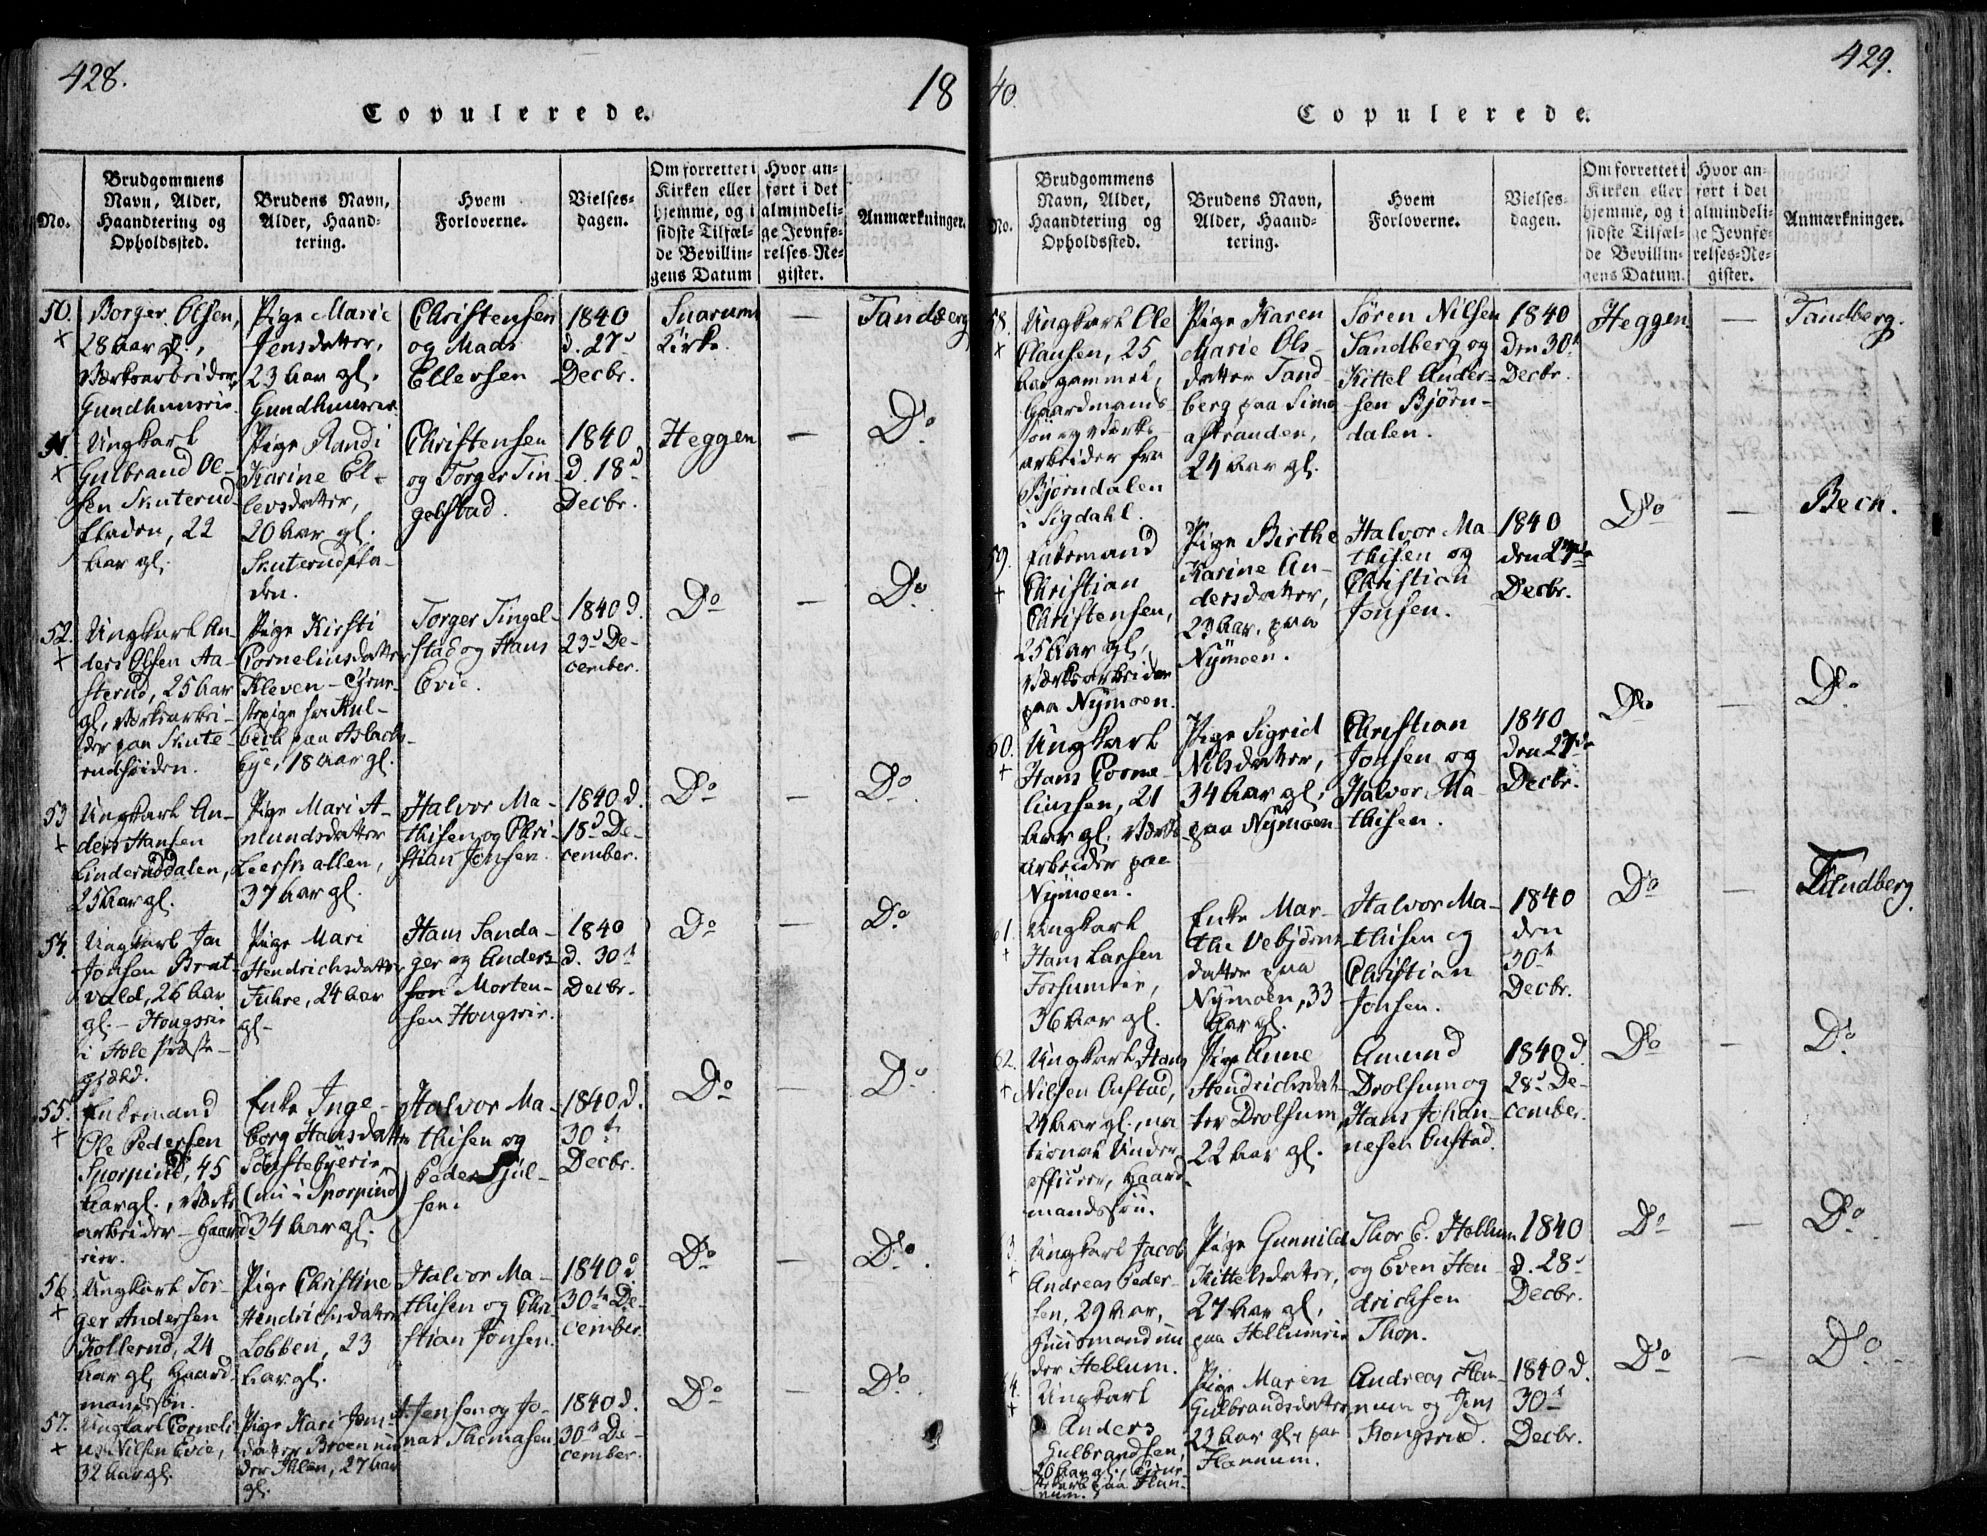 428.
18
Copulerede.
No.
Brudgommens
Navn, Alder,
Haandtering og
Opholdssted.
Brudens Navn,
Alder, Haand-
tering.
Hvem
Forloverne.
Vielses-
dagen.
Om forrettet i
Kirken eller
hjemme, og i
sidste Tilfæl-
de Bevillin-
gens Datum
Hvor an-
ført i det
almindeli-
ge Jevnfø-
relses-Re-
gister.
Anmærkninger.
50.
+
Borger Olsen,
28 Aar gl.,
Værksarbeider,
Pige Marie
Jensdatter,
23 Aar gl.
Christensen
og Mads
Ellersen
1840
d. 27d
Decbr.
Snarum
Kirke.
—
Tandberg
51.
+
Ungkarl
Gulbrand Ol-
sen Skuterud-
fladen, 22
Aar gl.
Pige Randi
Karine El-
levsdatter,
20 Aar gl.
Skuterudfla-
den.
Christensen
og Torger Tin-
gelstad.
1840
d. 18d
Decbr.
Heggen
—
Do
52.
+
Ungkarl An-
ders Olsen Aa-
sterud, 25 Aar
gl., Værksarbei-
der paa Skute-
rudheiden.
Pige Kirsti
Corneliusdatter
Kleven – Tjene-
stepige hos Kul-
beck paa
Eje, 18 Aar gl.
Torger Tingel-
stad og Hans
Evie.
1840 d.
23d De-
cember.
Do
—
Do
53
+
Ungkarl An-
ders Hansen
Linderuddalen,
25 Aar gl.
Pige Mari A-
mundsdatter
37 Aar gl.
Halvor Ma-
thisen og Chri-
stian Jonsen.
1840 d.
18d De-
cember.
Do
—
Do.
54.
Ungkarl Jon
Jonsen Brat-
vold, 26 Aar
gl. –
i Hole Præste-
gjæld.
Pige Mari
Hendrichsdatter
Fuhre, 24 Aar
gl.
Hans Sanda-
ger og Anders
Morten-
sen
1840
d. 30t
Decbr.
Do
—
Do.
55.
+
Enkemand
Ole Pedersen
Sporpind, 45
Aar gl., Værks-
arbeider –
Enke Inge-
borg Hansdatter
(nu i Sporpind)
34 Aar gl.
Halvor Ma-
thisen og
Peder Hjul-
sen.
1840 d.
30te
Decbr.
Do
—
Do.
56.
+
Ungkarl Tor-
ger Andersen
Kollerud, 24
Aar gl. Gaard-
mandssøn.
Pige Christine
Hendrichsdatter
Lobben, 23
Aar gl.
Halvor Ma-
thisen og Chri-
stian Jonsen.
1840 d.
30te De-
cember.
Do
—
Do.
57.
+
Ungkarl Corneli-
us Nilsen Evie,
32 Aar gl.
Pige Kari Jens-
datter Broen un-
der Ihlen, 27 Aar
gl.
A. Jensen og Jo-
nas Thomasen
1840 d.
30te De-
cember.
Do
—
Do.
40.
429.
Copulerede.
No.
Brudgommens
Navn, Alder,
Haandtering og
Opholdssted.
Brudens Navn,
Alder, Haand-
tering.
Hvem
Forloverne.
Vielses-
dagen.
Om forrettet i
Kirken eller
hjemme, og i
sidste Tilfæl-
de Bevillin-
gens Datum.
Hvor an-
ført i det
almindeli-
ge Jevnfø-
relses-Re-
gister.
Anmærkninger.
58.
+
Ungkarl Ole
Clausen, 25
Aar gammel,
Gaardmands-
søn og Værks-
arbeider fra
Bjørndalen
i Sigdahl.
Pige Karen
Marie Ols-
datter Tand-
berg paa Simo-
astranden,
24 Aar gl.
Søren Nilsen
Sandberg og
Kittel Ander-
sen Bjørn-
dalen.
1840
den 30t
Decbr.
Heggen
—
Tandberg.
59.
+
Enkemand
Christian
Christensen,
25 Aar gl,
Værksarbeider
paa Nymoen.
Pige Birthe
Karine An-
dersdatter,
23 Aar, paa
Nymoen.
Halvor Ma-
thisen og
Christian
Jonsen.
1840
den 27de
Decbr.
Do
—
Beck.
60.
+
Ungkarl
Hans Corne-
liussen, 21
Aar gl. Værks-
arbeider paa
Nymoen.
Pige Sigrid
Nilsdatter,
34 Aar gl,
paa Nymoen
Christian
Jonsen og
Halvor Ma-
thisen.
1840
den 27de
Decbr.
Do
—
Do.
61.
+
Ungkarl
Hans Larsen
36 Aar gl.
Enke Mar-
the Vebjørns-
datter paa
Nymoen, 33
Aar gl.
Halvor Ma-
thisen og
Christian
Jonsen.
1840
den
30te
Decbr.
Do
—
Tandberg.
62.
+
Ungkarl Hans
Nilsen Austad,
24 Aar gl., na-
tional Under-
officeer, Gaard-
mandssøn.
Pige Anne
Hendrichsdat-
ter Drolsum
22 Aar gl.
Amund
Drolsum og
Hans Johan-
nesen Austad.
1840 d.
28d De-
cember.
Do
—
Do.
63.
+
Ungkarl Jacob
Andreas Peder-
sen, 29 Aar,
Huusmand un-
der Hellum.
Pige Gunnild
Kittelsdatter,
27 Aar gl,
paa Hellumeie
Thor E. Hellum
og Even Hen-
drichsen
Thon.
1840
d. 28d
Decbr.
Do
—
Do.
64.
+
Ungkarl
Anders
Gulbrandsen,
26 Aar gl., Tjene-
stekarl paa Flan-
num.
Pige Maren
Gulbrandsdatter,
23 Aar gl, paa
Flannum.
Andreas Flan-
num og Jens
Kongsrud.
1840 d.
30t
Decbr.
Do
—
Do.